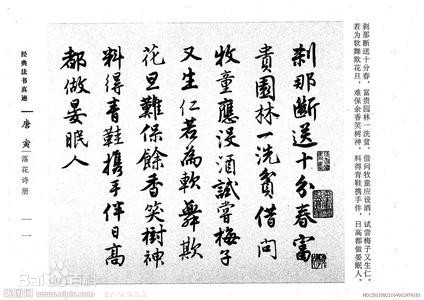 刹那断送十分春，富贵园林一洗贫。借问牧童应没酒，试尝梅子又生仁。
若为软舞欺花旦，难保余香笑树神。料得青鞋携手伴，日高都做晏眠人。
刹那斷送十分春富
貴園林一洗貧借問
牧童應沒酒試嘗梅子
又生仁若為軟舞欺
花旦難保餘香笑樹神
料得青鞋攜手伴日高
都做晏眠人
经典法书真迹 唐寅 落花诗册 一一
Bai 百科